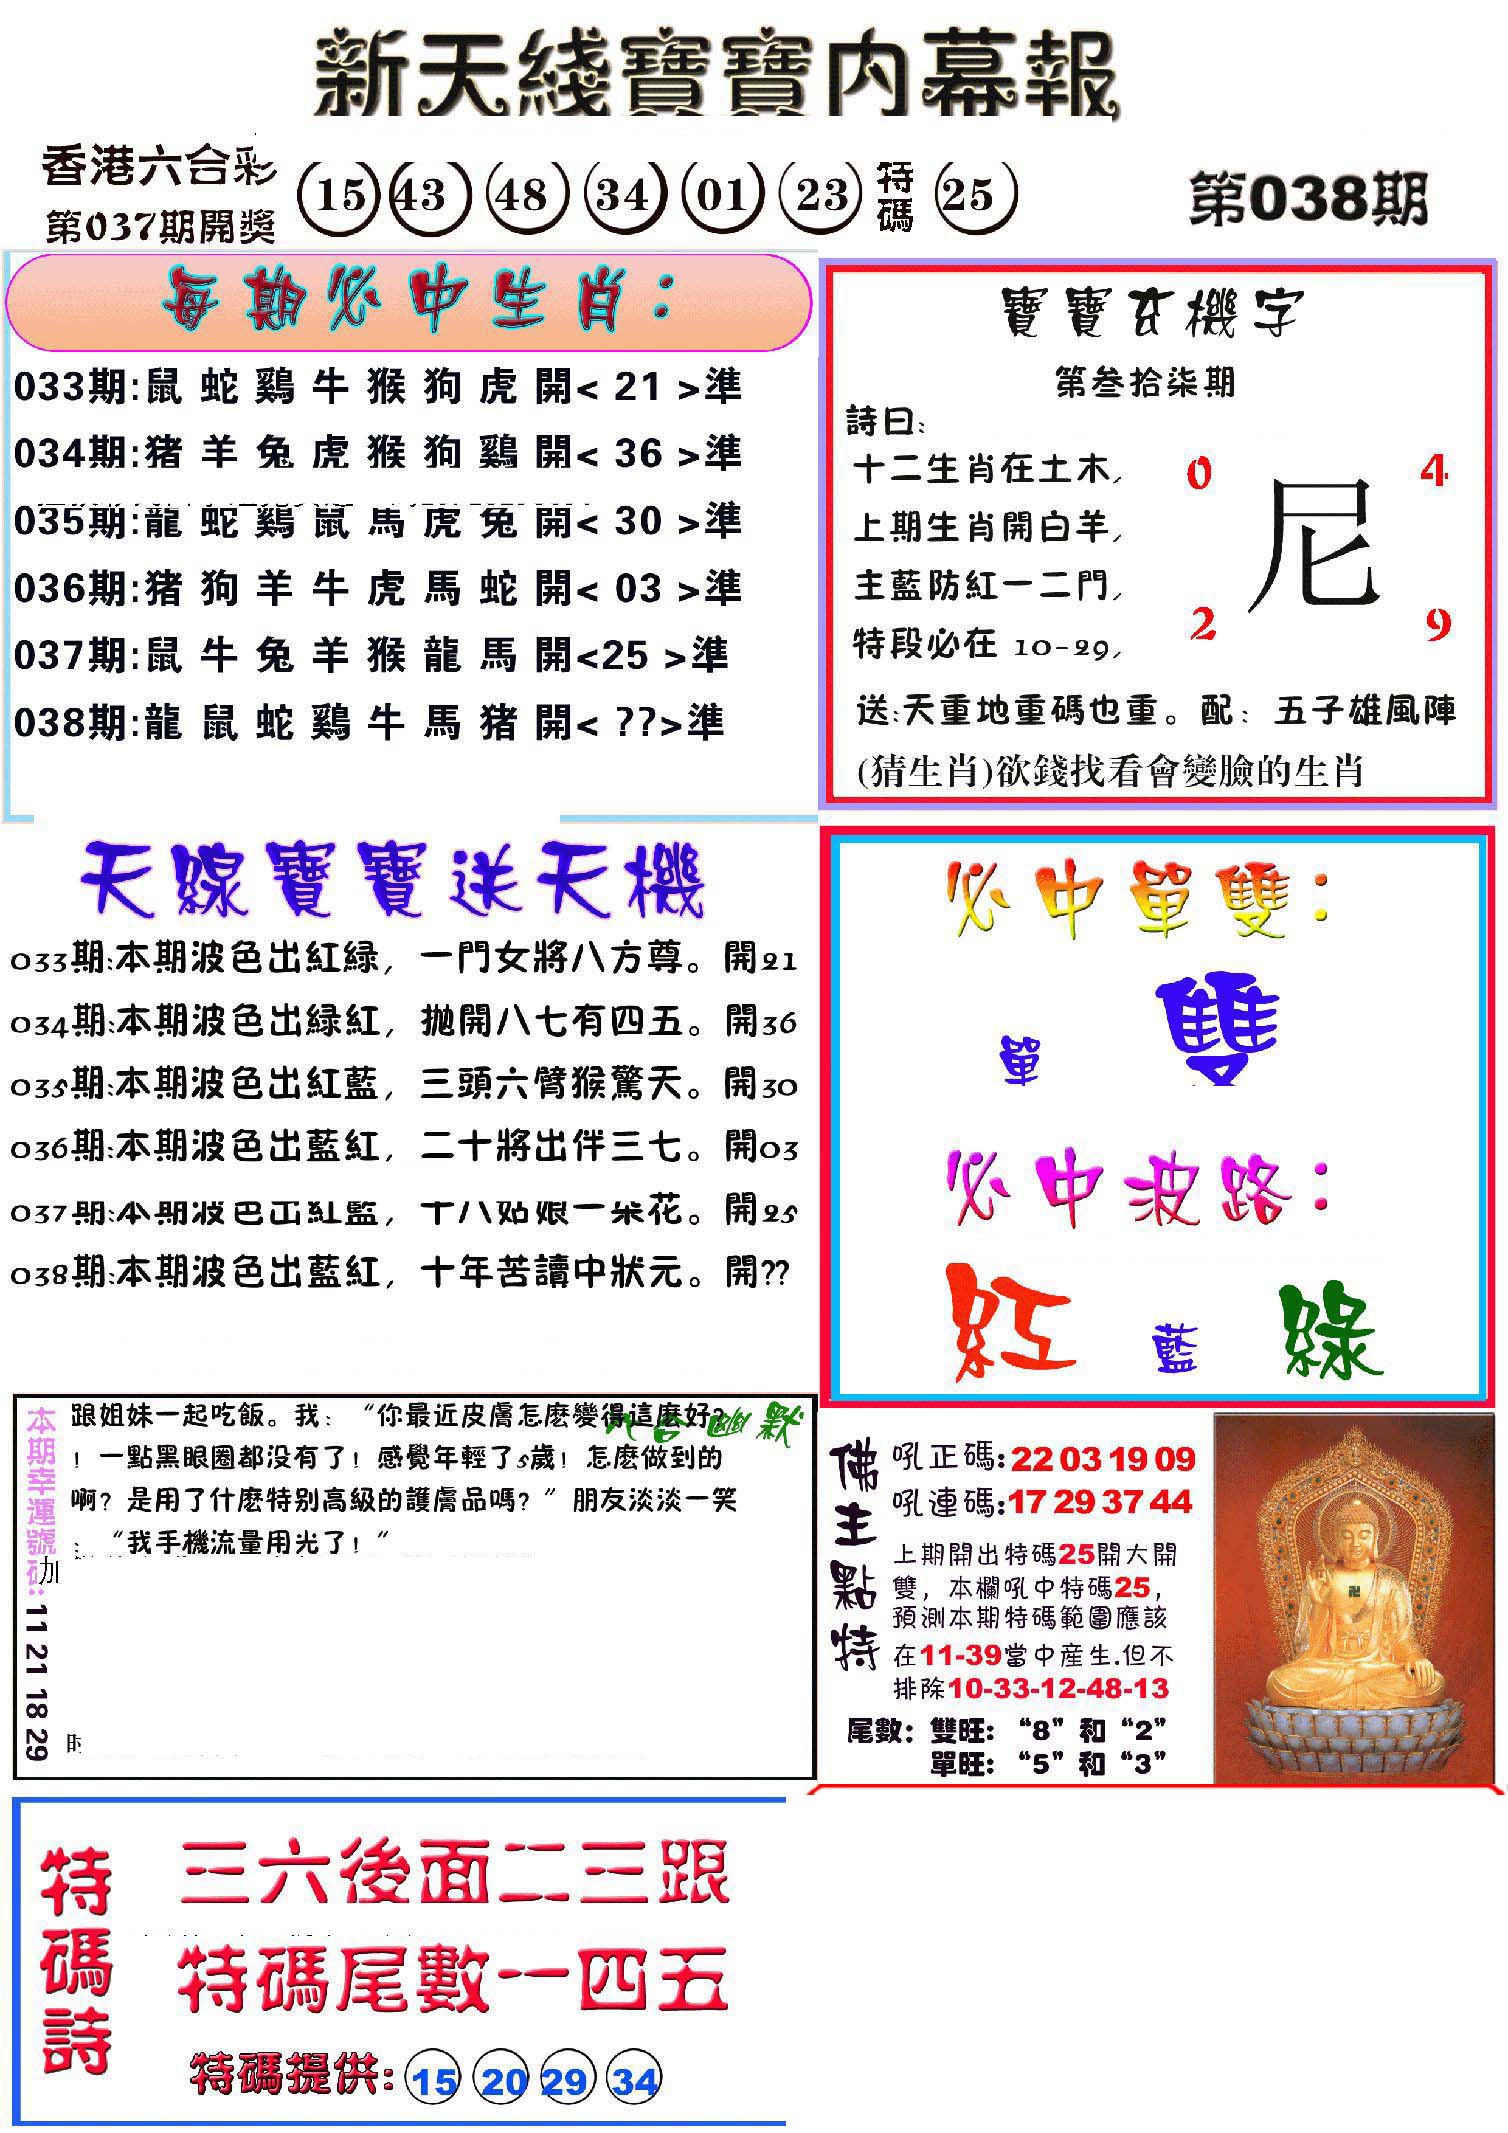 新天綫寶寶内幕報
香港六合彩
第037期開獎
15 43 48 34 01 23 特碼 25
第038期
每期必中生肖：
033期:鼠 蛇 鷄 牛 猴 狗 虎 開< 21 >準
034期:猪 羊 兔 虎 猴 狗 鷄 開< 36 >準
035期:龍 蛇 鷄 鼠 馬 虎 兔 開< 30 >準
036期:猪 狗 羊 牛 虎 馬 蛇 開< 03 >準
037期:鼠 牛 兔 羊 猴 龍 馬 開<25 >準
038期:龍 鼠 蛇 鷄 牛 馬 猪 開< ??>準
寶寶玄機字
第叁拾柒期
詩曰:
十二生肖在土木,
上期生肖開白羊,
主藍防紅一二門,
特段必在 10-29,
0 4
尼
2 9
送:天重地重碼也重。配: 五子雄風陣
(猜生肖)欲錢找看會變臉的生肖
天線寶寶送天機
033期:本期波色出紅緑, 一門女將八方尊。開21
034期:本期波色出緑紅, 拋開八七有四五。開36
035期:本期波色出紅藍, 三頭六臂猴驚天。開30
036期:本期波色出藍紅, 二十將出伴三七。開03
037期:本期波色出紅藍, 十八姑娘一朵花。開25
038期:本期波色出藍紅, 十年苦讀中狀元。開??
必中單雙：
單 雙
必中波路：
紅 藍 綠
本期幸運號碼: 11 21 18 29
六合幽默
跟姐妹一起吃飯。我: “你最近皮膚怎麽變得這麽好?
! 一點黑眼圈都没有了! 感覺年輕了5歲! 怎麽做到的
啊? 是用了什麽特别高級的護膚品嗎? ” 朋友淡淡一笑
: “我手機流量用光了! ”
加
時
佛主點特
吼正碼:22 03 19 09
吼連碼:17 29 37 44
上期開出特碼25開大開
雙, 本欄吼中特碼25,
預測本期特碼範圍應該
在11-39當中産生.但不
排除10-33-12-48-13
尾數: 雙旺: “8” 和 “2”
單旺: “5” 和 “3”
特碼詩
三六後面二三跟
特碼尾數一四五
特碼提供: 15 20 29 34